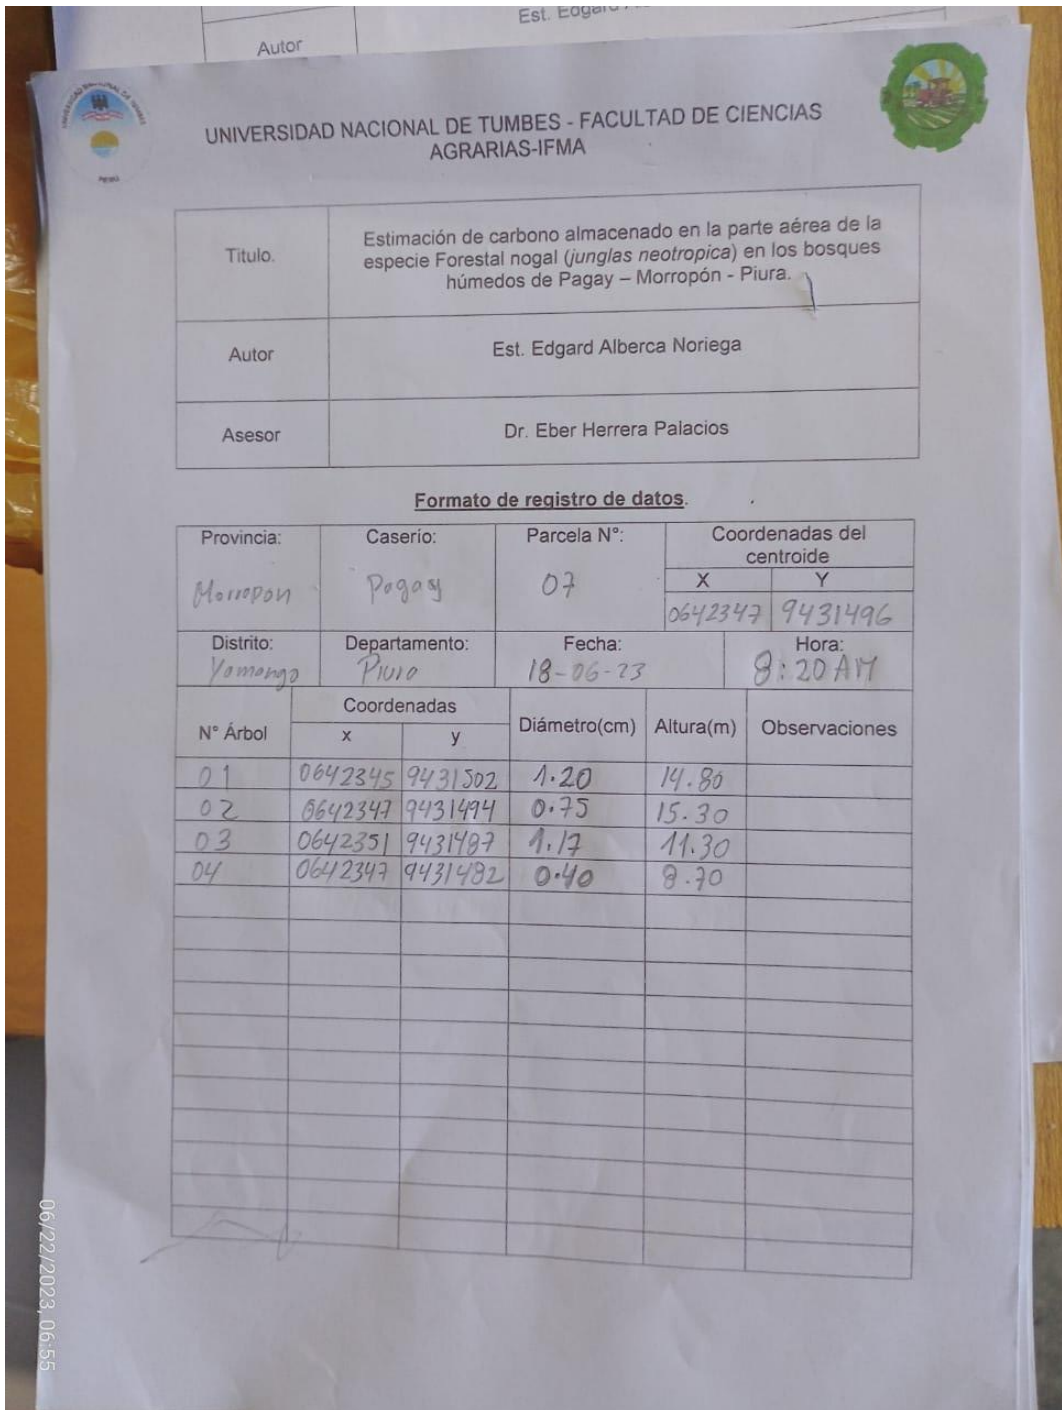 Est. Edgard
Autor
UNIVERSIDAD NACIONAL DE TUMBES
PERÚ
UNIVERSIDAD NACIONAL DE TUMBES - FACULTAD DE CIENCIAS
AGRARIAS-IFMA
Titulo.
Estimación de carbono almacenado en la parte aérea de la
especie Forestal nogal (junglas neotropica) en los bosques
húmedos de Pagay – Morropón - Piura.
Autor
Est. Edgard Alberca Noriega
Asesor
Dr. Eber Herrera Palacios
Formato de registro de datos.
Provincia: Caserío: Parcela N°: Coordenadas del
centroide
X Y
Morropon Pagay 07
0642347 9431496
Distrito: Departamento: Fecha: Hora:
Yamango Piura 18-06-23 8:20 AM
N° Árbol Coordenadas Diámetro(cm) Altura(m) Observaciones
x y
01 0642345 9431502 1.20 14.80
02 0642347 9431494 0.75 15.30
03 0642351 9431487 1.17 11.30
04 0642347 9431482 0.40 8.70
06/22/2023, 06:55